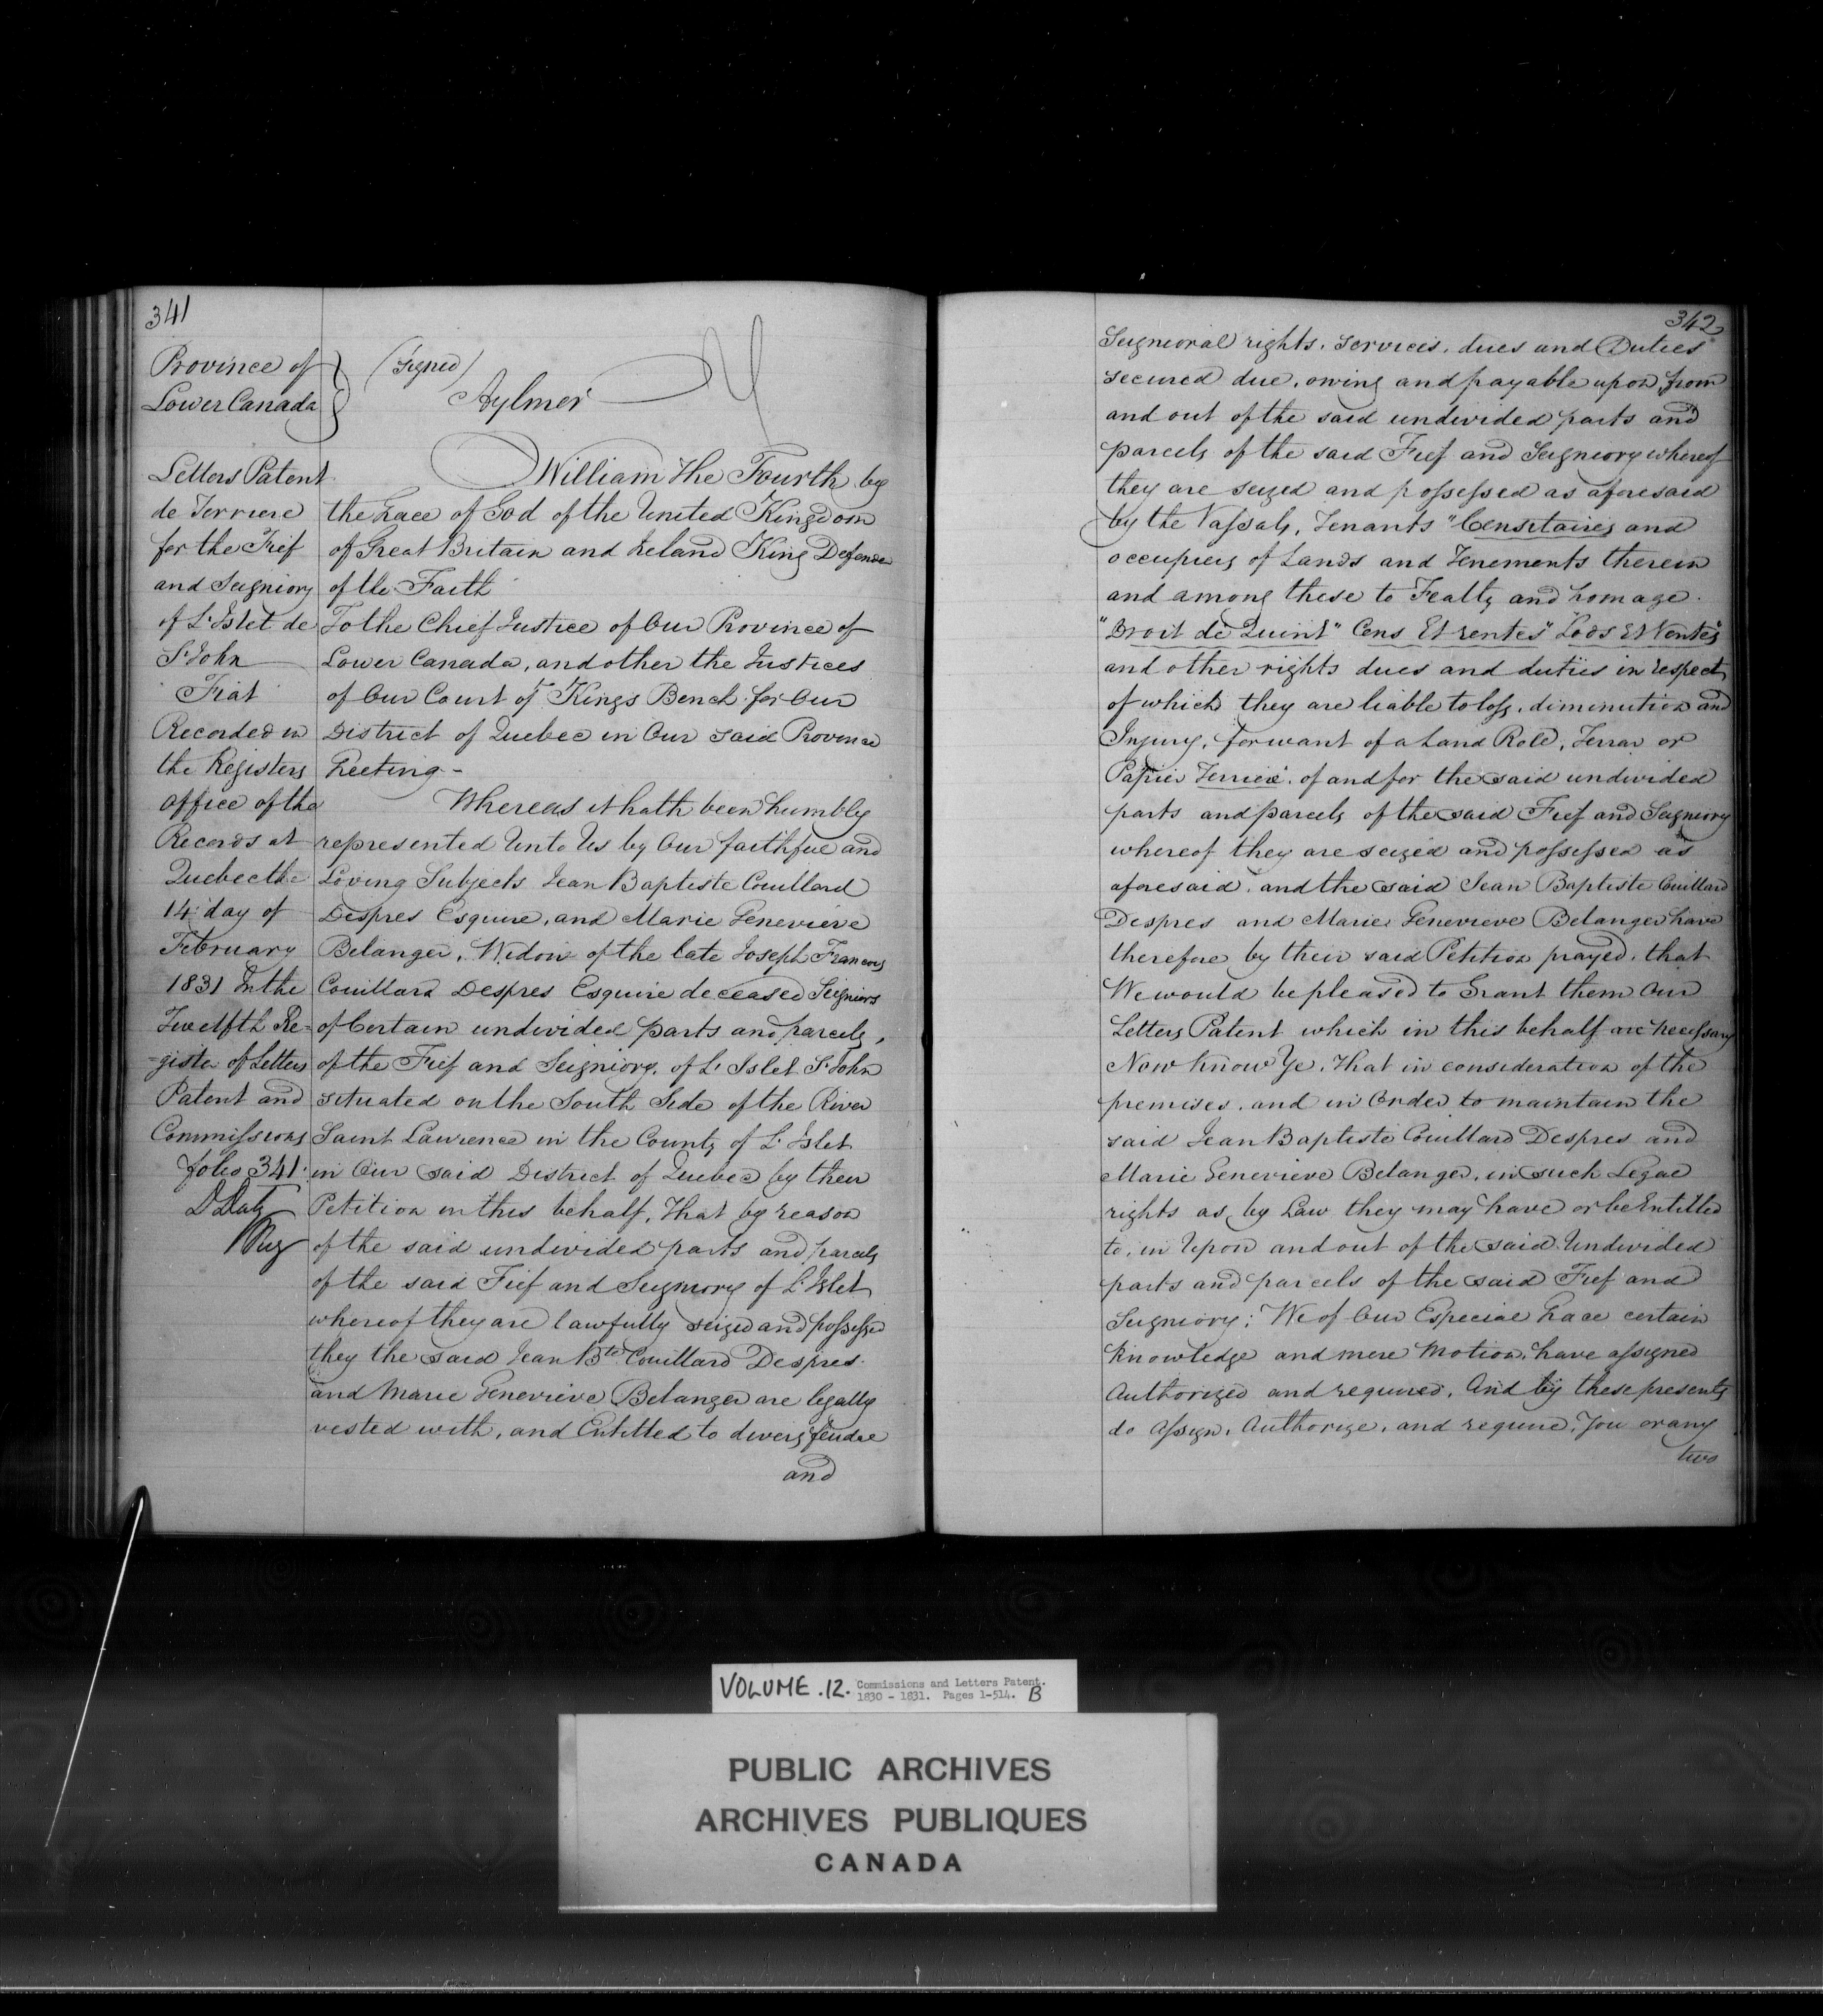 341
Province of
Lower Canada
(Signed)
Aylmer
Letters Patent
de Terriere
for the Fief
and Seigniory
of L'Islet de
St John
Fiat
Recorded in
the Registers
office of the
Records at
Quebec the
14 day of
February
1831 In the
Twelfth Re-
-gister of Letters
Patent and
Commissions
folio 341.
D Daly
Reg
William the Fourth by
the Grace of God of the United Kingdom
of Great Britain and Ireland King Defender
of the Faith
To the Chief Justice of Our Province of
Lower Canada, and other the Justices
of Our Court of Kings Bench for Our
District of Quebec in Our said Province
Greeting -
Whereas it hath been humbly
represented Unto Us by Our faithful and
Loving Subjects Jean Baptiste Couillard
Despres Esquire, and Marie Genevieve
Belanger, Widow of the late Joseph Francois
Couillard Despres Esquire deceased Seigniors
of Certain undivided parts and parcels,
of the Fief and Seigniory, of L'Islet St John
situated on the South Side of the River
Saint Lawrence in the County of L'Islet
in Our said District of Quebec by their
Petition in this behalf, That by reason
of the said undivided parts and parcels
of the said Fief and Seigniory of L'Islet
whereof they are lawfully seized and possessed
they the said Jean Bte Couillard Despres
and Marie Genevieve Belanger are legally
vested with, and Entitled to divers feudal
and
342
Seignioral rights, services, dues and Duties
secured due, owing and payable upon from
and out of the said undivided parts and
parcels of the said Fief and Seigniory whereof
they are seized and possessed as aforesaid
by the Vassals, Tenants "Censitaires and
occupiers of Lands and Tenements therein
and among these to Fealty and homage.
"Droit de Quint" Cens Et rentes" Lods Et Ventes"
and other rights dues and duties in respect
of which they are liable to loss, diminution and
Injury, for want of a Land Role, Terrar or
Papier Terrier. of and for the said undivided
parts and parcels of the said Fief and Seigniory
whereof they are seized and possessed as
aforesaid, and the said Jean Baptiste Couillard
Despres and Marie Genevieve Belanger have
therefore by their said Petition prayed, that
We would be pleased to Grant them Our
Letters Patent which in this behalf are necessary
Now Know Ye, that in consideration of the
premises, and in Order to maintain the
said Jean Baptiste Couillard Despres and
Marie Genevieve Belanger, in such Legal
rights as by Law they may have or be Entitled
to, in Upon and out of the said Undivided
parts and parcels of the said Fief and
Seigniory; We of Our Especial Grace certain
Knowledge and mere Motion, have assigned
Authorized and required, And by these presents
do Assign, Authorize, and require, You or any
two
VOLUME .12. Commissions and Letters Patent.
1830 - 1831. Pages 1-514. B
PUBLIC ARCHIVES
ARCHIVES PUBLIQUES
CANADA